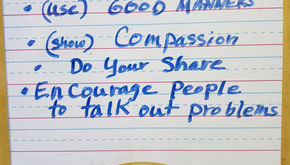 • (use) GOOD MANNERS
• (show) Compassion
• Do Your Share
• Encourage People
to talk out problems